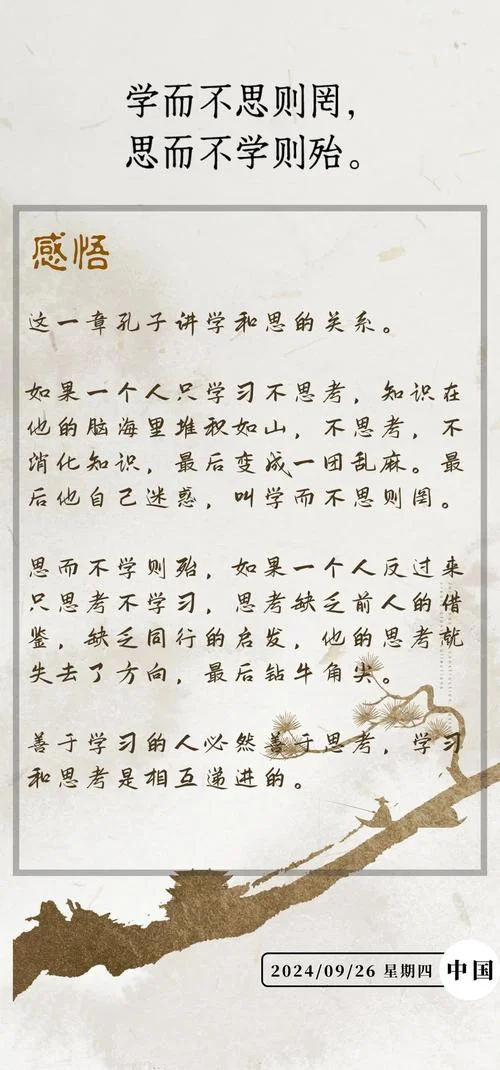 学而不思则罔，
思而不学则殆。
感悟
这一章孔子讲学和思的关系。
如果一个人只学习不思考，知识在
他的脑海里堆积如山，不思考，不
消化知识，最后变成一团乱麻。最
后他自己迷惑，叫学而不思则罔。
思而不学则殆，如果一个人反过来
只思考不学习，思考缺乏前人的借
鉴，缺乏同行的启发，他的思考就
失去了方向，最后钻牛角尖。
善于学习的人必然善于思考，学习
和思考是相互递进的。
2024/09/26 星期四 中国